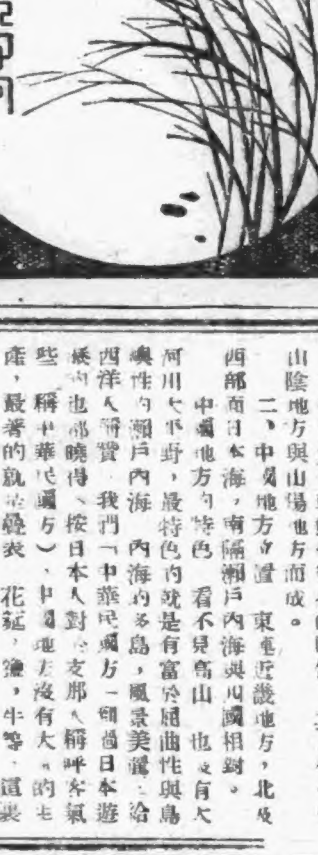 山陰地方與山陽地方而成。
二、中國地方位置 東連近畿地方，北及
西部面日本海，南隔瀨戶內海與四國相對。
中國地方的特色 看不見高山 也沒有大
河川大平野，最特色的就是有富於屈曲性與島
嶼性的瀨戶內海 內海的多島，風景美麗 給
西洋人所贊 我們「中華民國方一個過日本遊
的也都曉得、按日本人對 支那人稱呼客氣
些 稱中華民國方）、中國地方沒有大 的土
產，最著的就是疊表 花莚，鹽，牛等 這裏